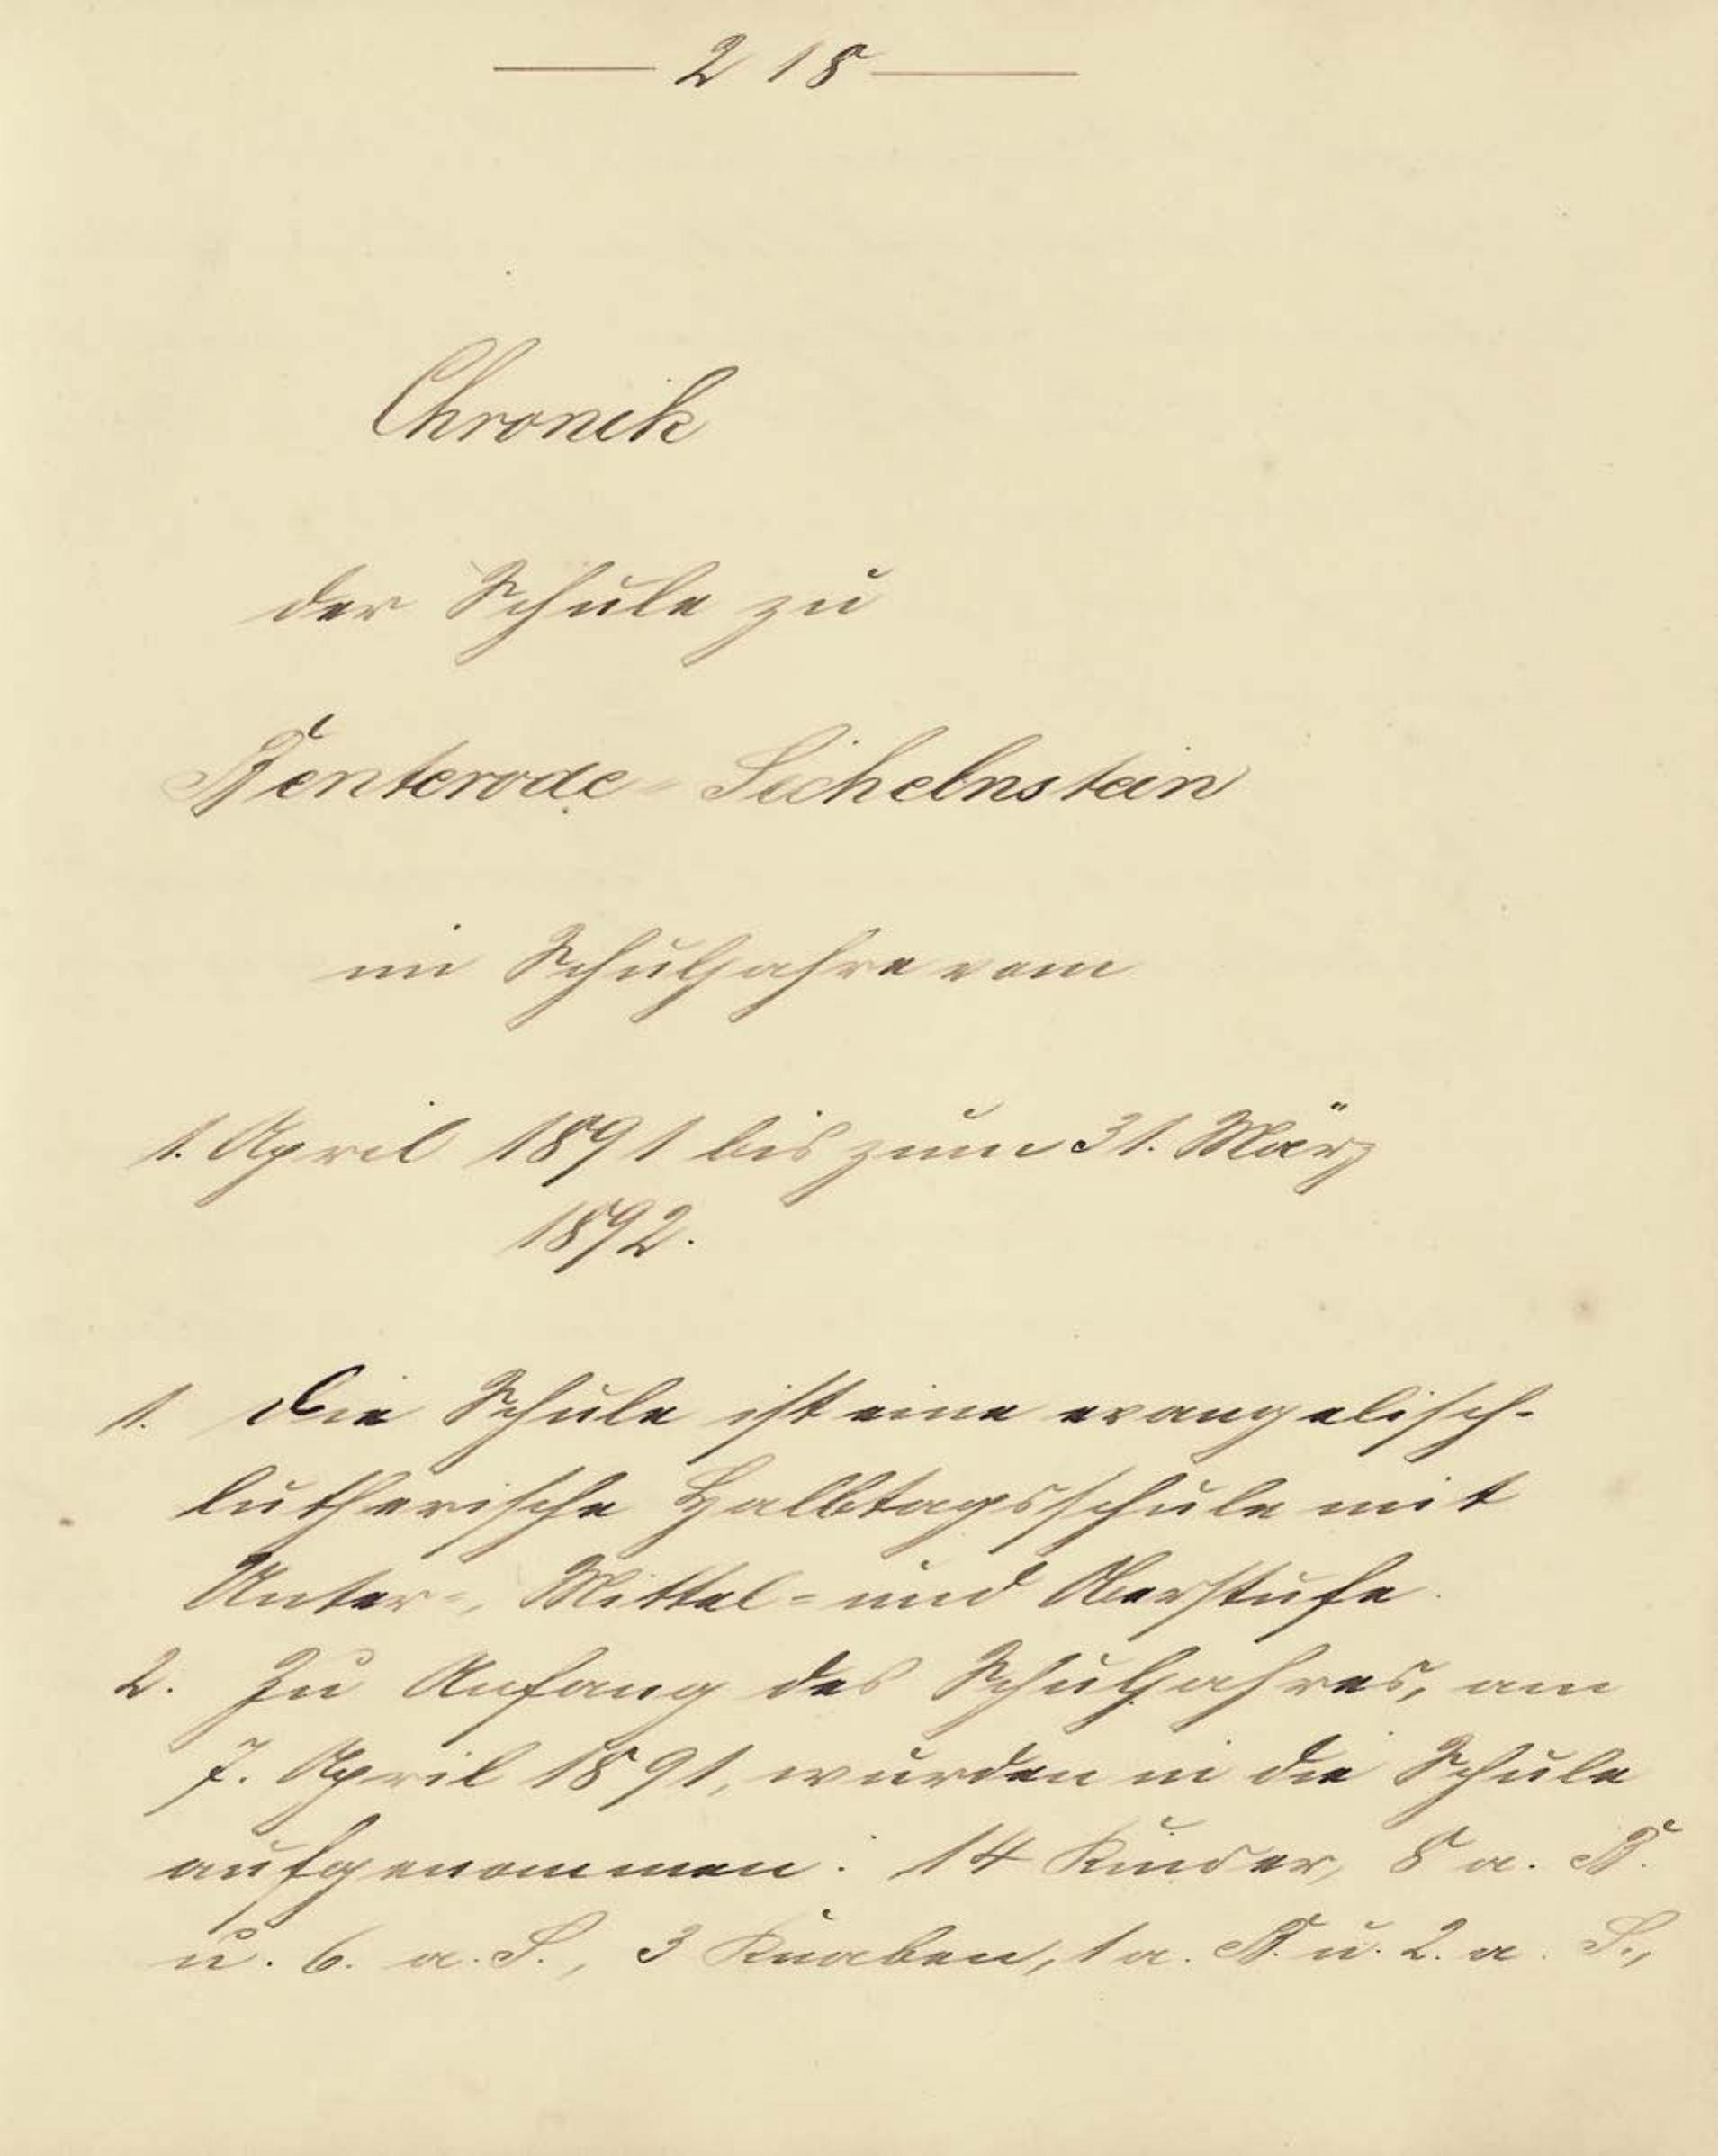 218
Chronik
der Schule zu
Benterode-Sichelnstein
im Schuljahre vom
1. April 1891 bis zum 31. März
1892.
1. Die Schule ist eine evangelisch-
lutherische Halbtagsschule mit
Unter-, Mittel- und Oberstufe.
2. Zu Anfang des Schuljahres, am
7. April 1891, wurden in die Schule
aufgenommen: 14 Kinder, 8 a. B.
u. 6. a. S., 3 Knaben, 1 a. B. u. 2. a. S.,